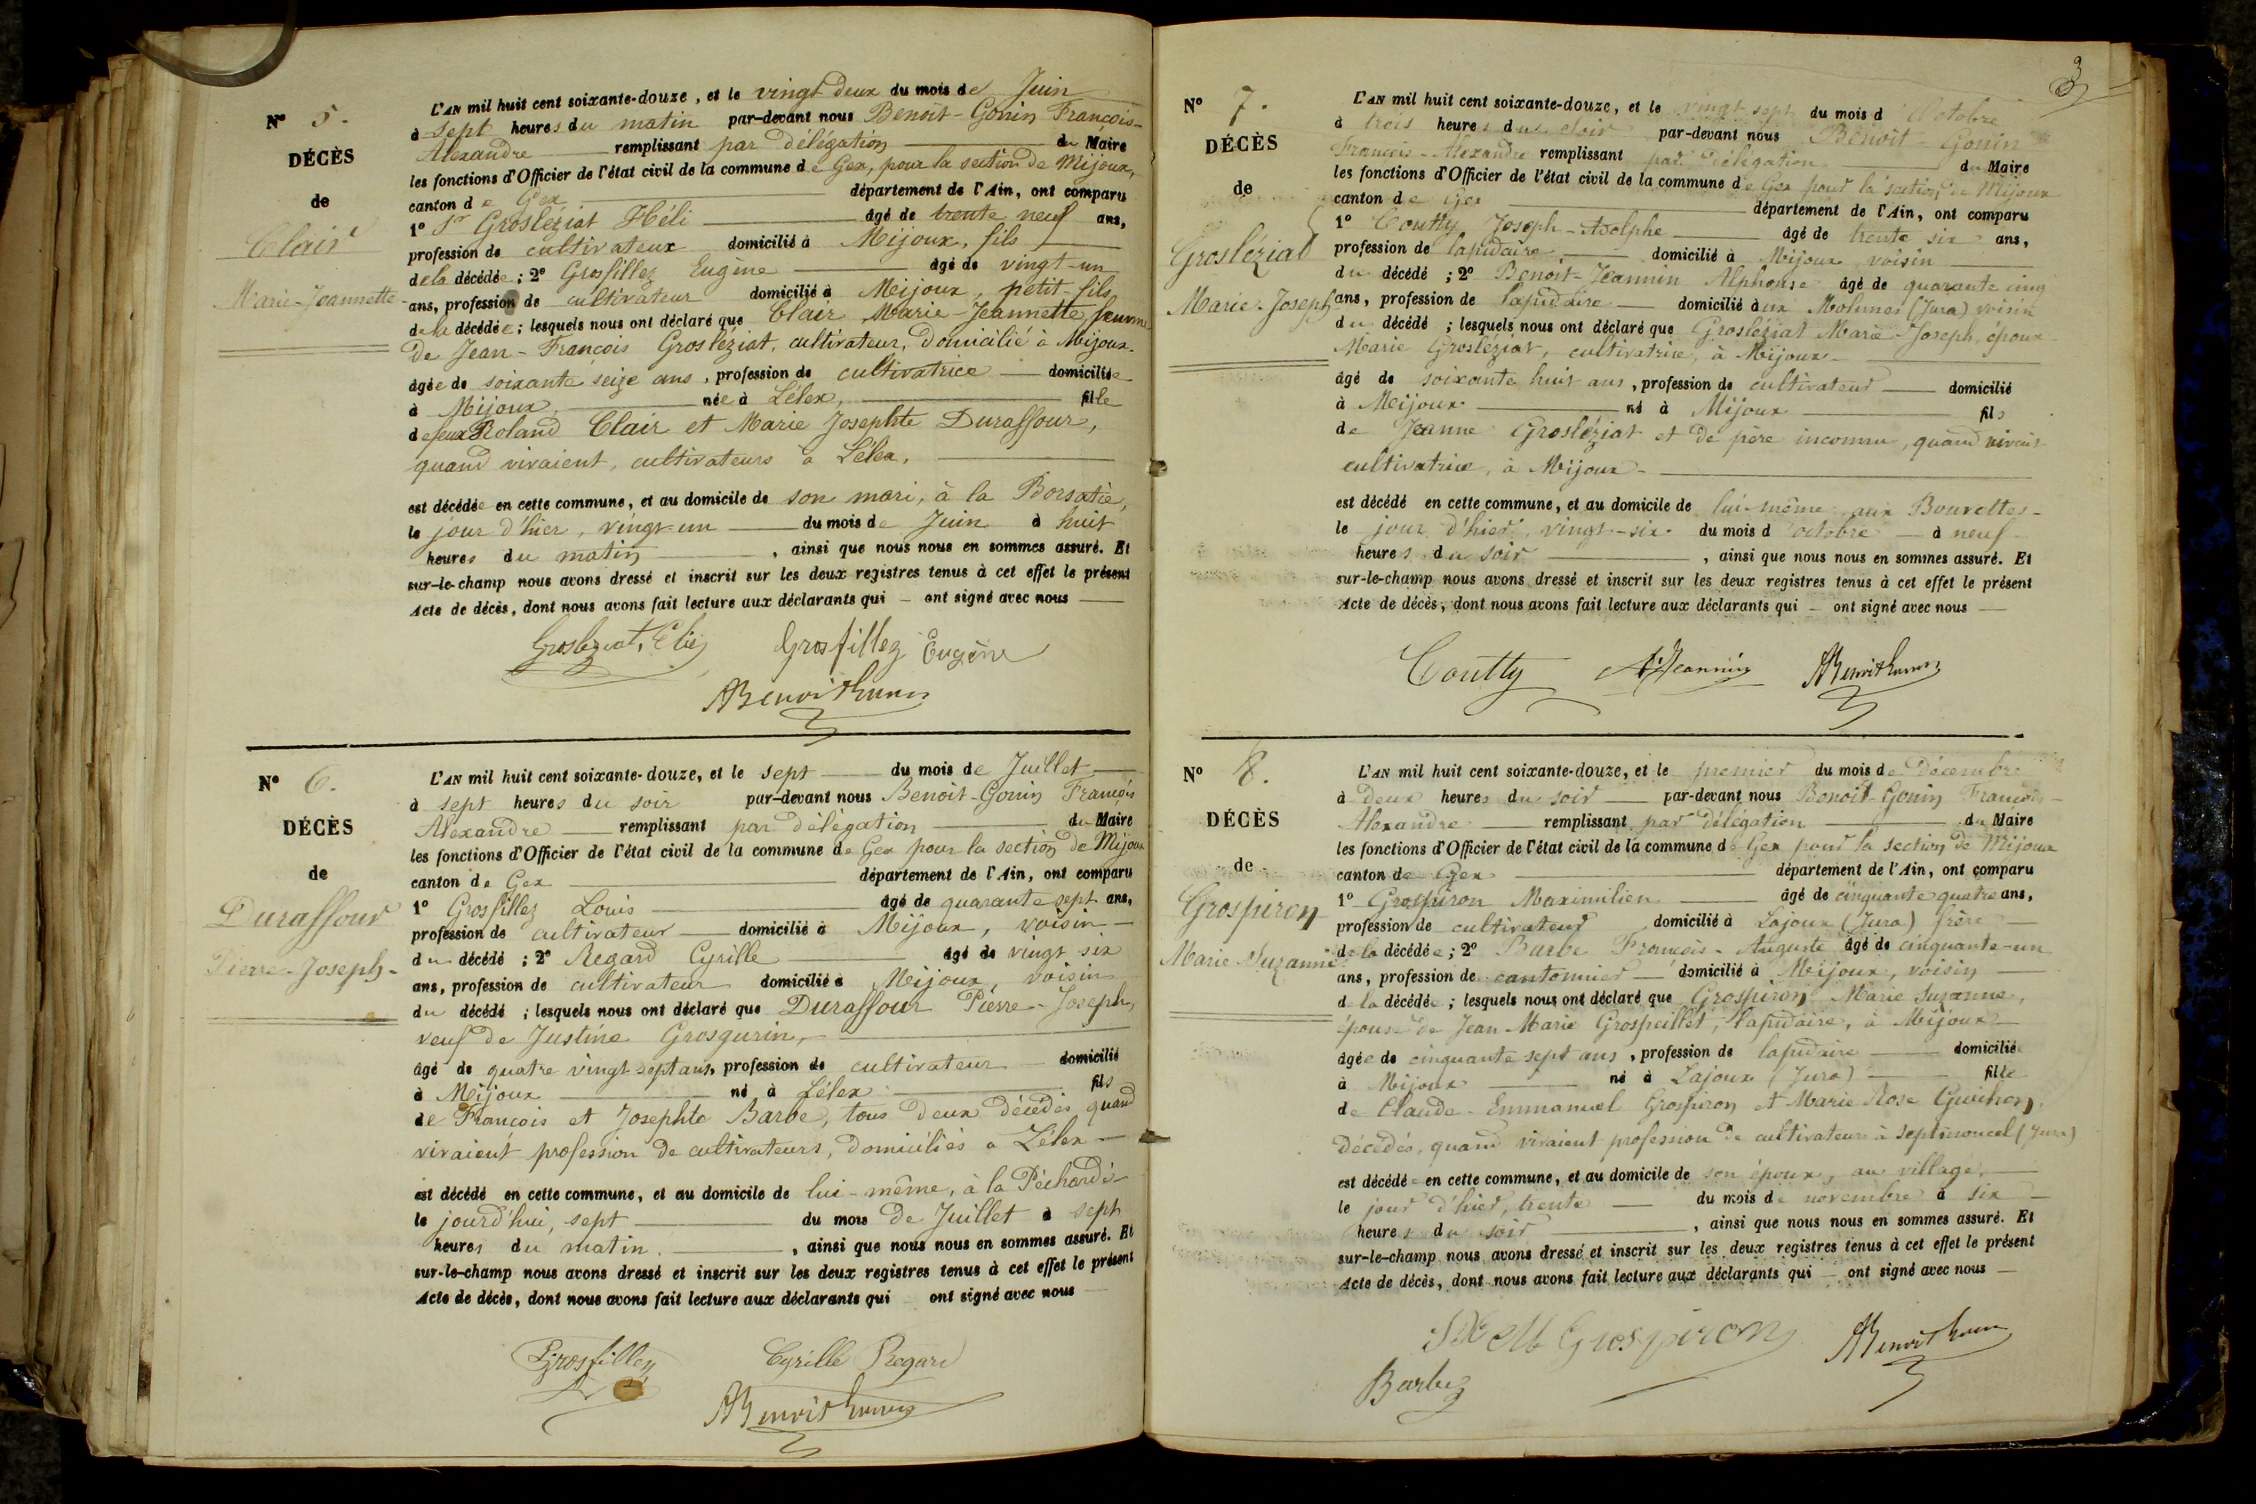 N° 5.
DÉCÈS
de
Clair
Marie-Jeannette
L'AN mil huit cent soixante-douze, et le vingt deux du mois de Juin
à sept heures du matin par-devant nous Benoît-Gonin François-
Alexandre remplissant par délégation du Maire
les fonctions d'Officier de l'état civil de la commune de Gex, pour la section de Mijoux,
canton de Gex département de l'Ain, ont comparu
1° Grosleziat Héli âgé de trente neuf ans,
profession de cultivateur domicilié à Mijoux, fils
de la décédée ; 2° Grosfillez Eugène âgé de vingt-un
ans, profession de cultivateur domicilié à Mijoux, petit-fils
de la décédée ; lesquels nous ont déclaré que Clair Marie-Jeannette, femme
de Jean-François Grosléziat, cultivateur, domicilié à Mijoux.
âgée de soixante seize ans, profession de cultivatrice domiciliée
à Mijoux, née à Lélex, fille
de feux Roland Clair et Marie Josephte Duraffour,
quand vivaient, cultivateurs à Lélex,
est décédée en cette commune, et au domicile de son mari, à la Borsatie,
le jour d'hier, vingt-un du mois de Juin à huit
heures du matin, ainsi que nous nous en sommes assuré. Et
sur-le-champ nous avons dressé et inscrit sur les deux registres tenus à cet effet le présent
Acte de décès, dont nous avons fait lecture aux déclarants qui ont signé avec nous
Grosleziat, Elie Grosfillez Eugène
ABenoitGonin
N° 6.
DÉCÈS
de
Duraffour
Pierre-Joseph-
L'AN mil huit cent soixante-douze, et le sept du mois de Juillet
à sept heures du soir par-devant nous Benoît-Gonin François
Alexandre remplissant par délégation du Maire
les fonctions d'Officier de l'état civil de la commune de Gex pour la section de Mijoux
canton de Gex département de l'Ain, ont comparu
1° Grosfillez Louis âgé de quarante sept ans,
profession de cultivateur domicilié à Mijoux, voisin
du décédé ; 2° Regard Cyrille âgé de vingt six
ans, profession de cultivateur domicilié à Mijoux, voisin
du décédé ; lesquels nous ont déclaré que Duraffour Pierre-Joseph,
veuf de Justine Grosgurin,
âgé de quatre vingt sept ans, profession de cultivateur domicilié
à Mijoux né à Lélex fils
de François et Josephte Barbe, tous deux décédés quand
vivaient profession de cultivateurs, domiciliés à Lélex
est décédé en cette commune, et au domicile de lui-même, à la Péchardé
le jourd'hui, sept du mois de Juillet à sept
heures du matin, ainsi que nous nous en sommes assuré. Et
sur-le-champ nous avons dressé et inscrit sur les deux registres tenus à cet effet le présent
Acte de décès, dont nous avons fait lecture aux déclarants qui ont signé avec nous
Grosfillez Cyrille Regard
ABenoitGonin
3
N° 7.
DÉCÈS
de
Grosléziat
Marie-Joseph
L'AN mil huit cent soixante-douze, et le vingt sept du mois d'Octobre
à trois heures du soir par-devant nous Benoît-Gonin
François-Alexandre remplissant par délégation du Maire
les fonctions d'Officier de l'état civil de la commune de Gex pour la section de Mijoux
canton de Gex département de l'Ain, ont comparu
1° Coutty Joseph-Adolphe âgé de trente six ans,
profession de lapidaire domicilié à Mijoux voisin
du décédé ; 2° Benoît-Jeannin Alphonse âgé de quarante cinq
ans, profession de lapidaire domicilié aux Molunes (Jura) voisin
du décédé ; lesquels nous ont déclaré que Grosléziat Marie-Joseph, époux
Marie Grosléziat, cultivatrice, à Mijoux-
âgé de soixante huit ans, profession de cultivateur domicilié
à Mijoux né à Mijoux fils
de Jeanne Grosléziat et de père inconnu, quand vivait
cultivatrice, à Mijoux-
est décédé en cette commune, et au domicile de lui-même aux Bouvettes-
le jour d'hier, vingt-six du mois d'octobre à neuf
heures du soir, ainsi que nous nous en sommes assuré. Et
sur-le-champ nous avons dressé et inscrit sur les deux registres tenus à cet effet le présent
Acte de décès, dont nous avons fait lecture aux déclarants qui ont signé avec nous
Coutty AJeannin ABenoitGonin
N° 8.
DÉCÈS
de
Grospiron
Marie Suzanne
L'AN mil huit cent soixante-douze, et le premier du mois de Décembre
à deux heures du soir par-devant nous Benoît-Gonin François-
Alexandre remplissant par délégation du Maire
les fonctions d'Officier de l'état civil de la commune de Gex pour la section de Mijoux
canton de Gex département de l'Ain, ont comparu
1° Grospiron Maximilien âgé de cinquante quatre ans,
profession de cultivateur domicilié à Lajoux (Jura) frère
de la décédée ; 2° Barbe François-Auguste âgé de cinquante-un
ans, profession de cantonnier domicilié à Mijoux, voisin
de la décédée ; lesquels nous ont déclaré que Grospiron Marie Suzanne,
épouse de Jean Marie Grospeillet, lapidaire, à Mijoux
âgée de cinquante sept ans, profession de lapidaire domiciliée
à Mijoux né à Lajoux (Jura) fille
de Claude-Emmanuel Grospiron et Marie Rose Guichon,
décédés, quand vivaient profession de cultivateurs à Septmoncel (Jura)
est décédée en cette commune, et au domicile de son époux, au village,
le jour d'hier, trente du mois de novembre à six
heures du soir, ainsi que nous nous en sommes assuré. Et
sur-le-champ nous avons dressé et inscrit sur les deux registres tenus à cet effet le présent
Acte de décès, dont nous avons fait lecture aux déclarants qui ont signé avec nous
Grospiron ABenoitGonin
Barbe